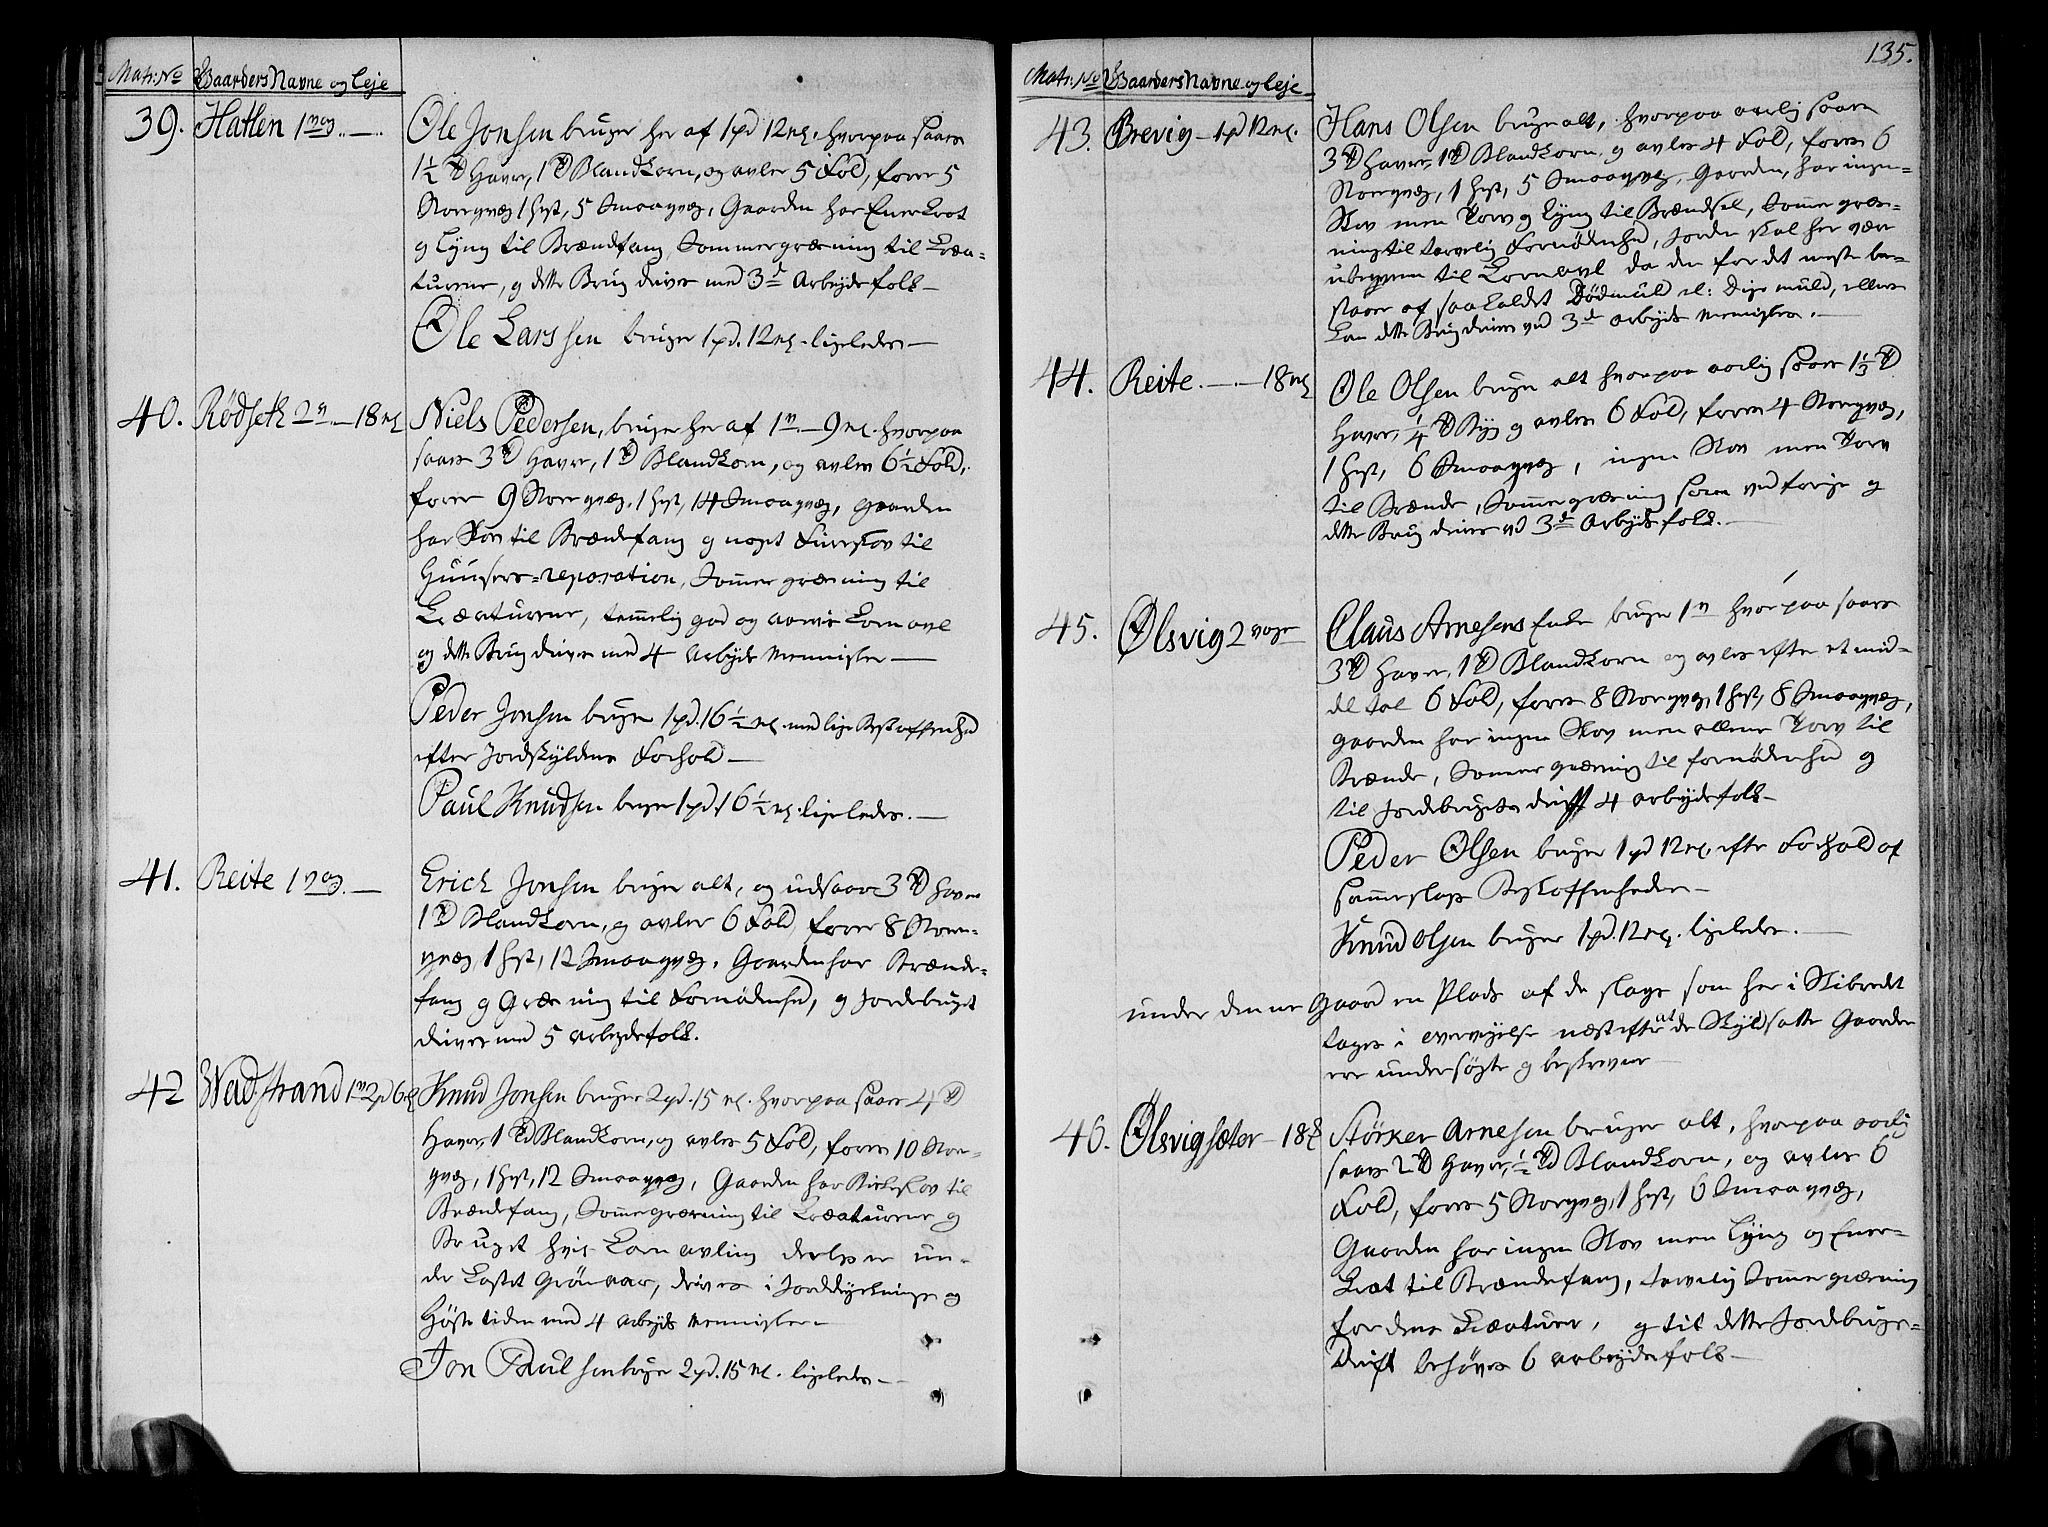 Matr: No Gaarders Navne og Leje
39. Hatlen 1 vog
Ole Jonsen bruger her af 1 pd 12 mk. hvorpaa saaes
1½ Td Havre, 1 Td Blandkorn, og avler 5 Fold, foer 5
Storqvæg 1 hest, 5 Smaaqvæg, Gaarden har Enerkrat
og Lyng til Brændfang Sommergræsning til Crea-
turene, og dette Brug drives med 3de Arbejdsfolk -
Ole Larssen bruger 1 pd. 12 mk. ligeledes -
40. Rödseth 2 v - 18 mk
Niels Pedersen, bruger her af 1 v. - 9 mk. hvorpaa
saaes 3 Td Havre, 1 Td Blandkorn, og avler 6½ Fold,
foer 9 Storqvæg, 1 hest, 14 Smaaqvæg, gaarden
har Skov til Brændefang og noget Furreskov til
Huusers-reparation, Sommergræsning til
Creaturene, temmelig god og aarvis Kornavl
og dette Brug drives med 4 Arbejds Mennisker -
Peder Jonsen bruger 1 pd. 16½ mk. med lige Beskaffenhed
efter Jordskyldens Forhold -
Paul Knudsen bruger 1 pd. 16½ mk. ligeledes. -
41. Reite 1 vog. -
Erich Jonsen bruger alt, og udsaaer 3 Td Havre
1 Td Blandkorn, og avler 6 Fold foer 8 Stor-
qvæg, 1 hest, 12 Smaaqvæg. Gaarden har Brænde-
fang og Græsning til Fornødenhed, og Jordebruget
drives med 5 arbejdsfolk.
42 Wadstrand 1 v 2 pd 6 mk
Knud Jonsen bruger 2 pd. 15 mk. hvorpaa saaes 4 Td
Havre, 1 Td Blandkorn, og avler 5 Fold, foer 10 Stor-
qvæg, 1 hest, 12 Smaaqvæg, Gaarden har Birkeskov til
Brændefang, Sommergræsning til Creaturene og
Bruget hvis Kornavling derhos er un-
der kastet Grönaar, drives i Jorddyrknings og
Høste tiden med 4 Arbejds Mennisker -
Jon Paulsen bruger 2 pd. 15 mk. ligeledes -
135.
Matr: No Gaarders Navne og Leje
43. Brevig - 1 pd 12 mk.
Hans Olsen bruger alt, hvorpaa aarlig saaes
3 Td Havre, 1 Td Blandkorn og avler 4 Fold, foer 6
Storqvæg, 1 hest, 5 Smaaqvæg, Gaarden, har ingen
Skov men Torv og Lyng til Brændsel, Sommer græs-
ning til tarvelig Fornødenhed, Jorden skal her være
ubeqvem til Kornavl da den for det meste be-
staaer af saakaldet Dødmuld el: Dyemuld, ellers
kan dette Brug drives ved 3de arbejds Mennisker. -
44. Reite. - 18 mk
Ole Olsen bruger alt hvorpaa aarlig saaes 1½ Td
Havre, ¼ Td Byg og avler 6 Fold, foer 4 Storqvæg,
1 hest, 6 Smaaqvæg, ingen Skov men Torv
til Brænde, Sommergræsning som ved forrige og
dette Brug drives ved 3de Arbejdsfolk. -
45. Ølsvig 2 voger
Claus Arnesens Enke bruger 1 v hvorpaa saaes
3 Td Havre, 1 Td Blandkorn og avles efter et mid-
del tal 6 Fold, foer 8 Storqvæg, 1 hest, 8 Smaaqvæg,
gaarden har ingen Skov men allene Torv til
Brænde, Sommergræsning til fornødenhed og
til Jordebrugets drift 4 arbejdsfolk -
Peder Olsen bruger 1 pd 12 mk. efter Forhold af
samme slags Beskaffenheder -
Knud Olsen bruger 1 pd. 12 mk. ligeledes. -
under denne Gaard en Plads af de slags som her i Skibredet
tages i overvejelse næst efter at de Skyldsatte Gaarder
ere undersøgte og beskrevne -
46. Ølsvigsæter - 18 mk
Störker Arnesen bruger alt, hvorpaa aarlig
saaes 2 Td Havre, ½ Td Blandkorn, og avler 6
Fold, foer 5 Storqvæg, 1 hest, 6 Smaaqvæg,
Gaarden har ingen Skov men Lyng og Ener-
Krat til Brændefang, tarvelig Sommergræsning
for dens Creaturer, og til dette Jordebrugs-
Drift behøves 6 arbejdsfolk -